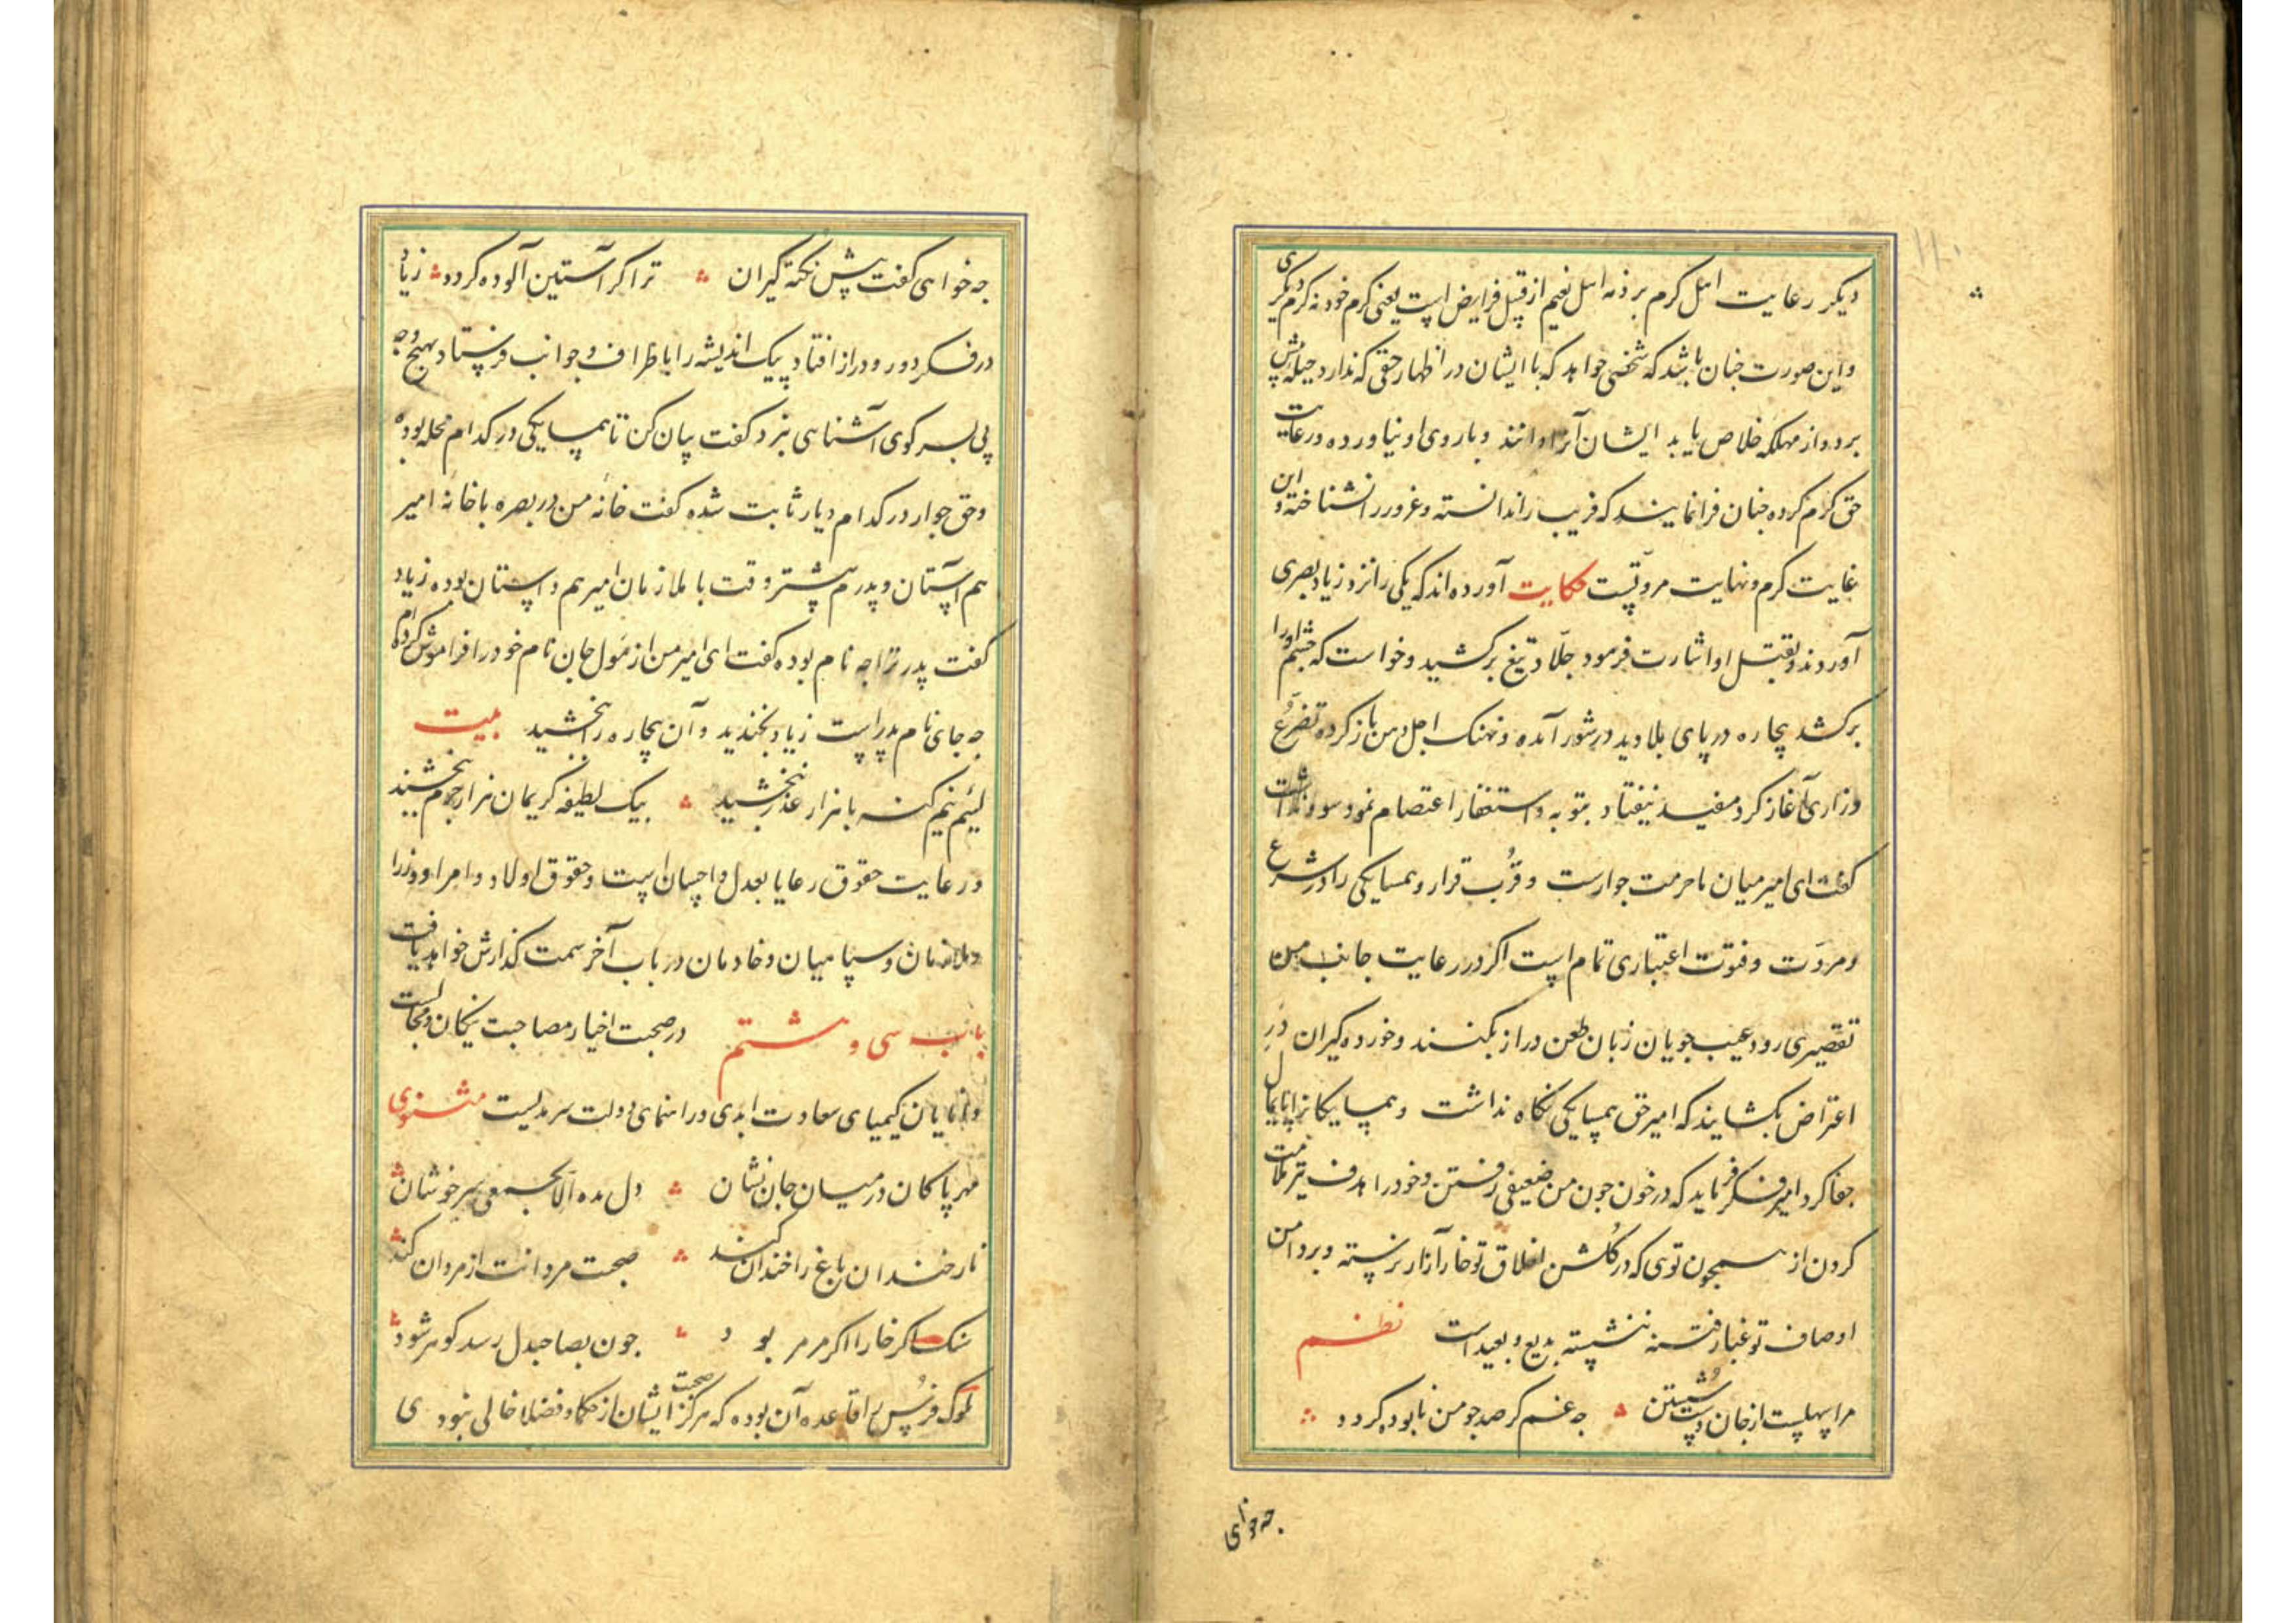 دیکر رعایت اهل کرم بر ذمه اهل نعیم از قبیل فرایض است یعنی کرم خود نه کرم دیکری
واین صورت جنان باشد که شخصی خواهد که با ایشان در اظهار حقی که ندارد حیله پیش
برد و از مهلکه خلاص یابد ایشان آنرا دانند و با روی او نیاورده در رعایت
حق کرم کرده جنان فرا نمایند که فریب را ندانسته و غرور را نشناخته و این
غایت کرم و نهایت مروتست حکایت آورده اند که یکی را نزد زیاد بصری
آوردند و بقتل او اشارت فرمود جلاد تیغ برکشید و خواست که جشم او را
برکشد بیجاره دریای بلا دید در شور آمده و نهنک اجل دهن باز کرده تضرع
و زاری آغاز کرد مفید نیفتاد بتوبه و استغفار اعتصام نمود سود نداشت
کفت ای امیر میان ما حرمت جوارست و قرب قرار و همسایکی را در شرع
و مروت و فتوت اعتباری تمام است اکر در رعایت جانب من
تقصیری رود عیب جویان زبان طعن دراز بکنند و خورده کیران در
اعتراض بکشایند که امیر حق همسایکی نکاه نداشت و همسایکانرا پایمال
جفا کرد امیر فکر فرماید که در خون جون من ضعیفی رفتن و خود را هدف تیر ملامت
کردن از همجون توی که در کلشن اخلاق تو خار آزار نرسته و بر دامن
اوصاف تو غبار فتنه ننشسته بدیع و بعید است نظم
مرا سهلست از جان دست شستن جه غم کر صد جو من نابوده کردد
جه خواهی
جه خواهی کفت پیش نکته کیران ترا کر آستین آلوده کردد زیاد
در فکر دور و دراز افتاد پیک اندیشه را باطراف و جوانب فرستاد بهیج وجه
پی بسر کوی آشناهی نبرد کفت بیان کن تا همسایکی در کدام محله بوده
و حق جوار در کدام دیار ثابت شده کفت خانه من در بصره با خانه امیر
هم آستان و پدرم بیشتر وقت با ملازمان امیر هم داستان بوده زیاد
کفت پدر ترا جه نام بوده کفت ای امیر من از هول جان نام خود را فراموش کرده ام
جه جای نام پدر است زیاد بخندید و آن بیجاره را بخشید بیت
لئیم نیم کنه با هزار عذر نبخشید بیک لطیفه کریمان هزار جرم ببخشند
و رعایت حقوق رعایا بعدل و احسان است و حقوق اولاد و امرا و وزرا
و ملازمان و سپاهیان و خادمان در باب آخر سمت کذارش خواهد یافت
باب سی و هشتم در صحبت اخیار مصاحبت نیکان و مجالست
دانایان کیمیای سعادت ابدی و راهنمای دولت سرمدیست مثنوی
مهر پاکان در میان جان نشان دل مده الا بجمعی سرخوشان
نار خندان باغ را خندان کند صحبت مردانت از مردان کند
سنک اکر خارا اکر مرمر بود جون بصاحبدل رسد کوهر شود
ملوک فرس را قاعده آن بوده که هرکز صحبت ایشان از حکما و فضلا خالی نبودی